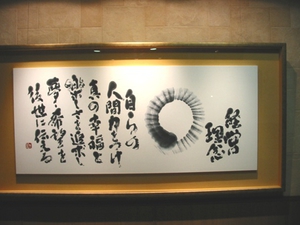 経営
理念
自らの
人間力をつけ
真の幸福と
楽しさを追求し
夢と希望を
後世に伝える